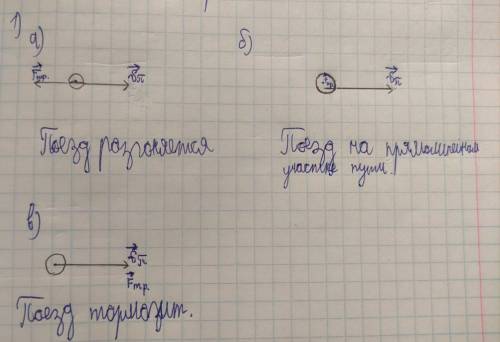 1)
а)
б)
Fтр.
υп
Fтр
υп
Поезд разгоняется
Поезд на прямолинейном
участке пути.
в)
υп
Fтр.
Поезд тормозит.